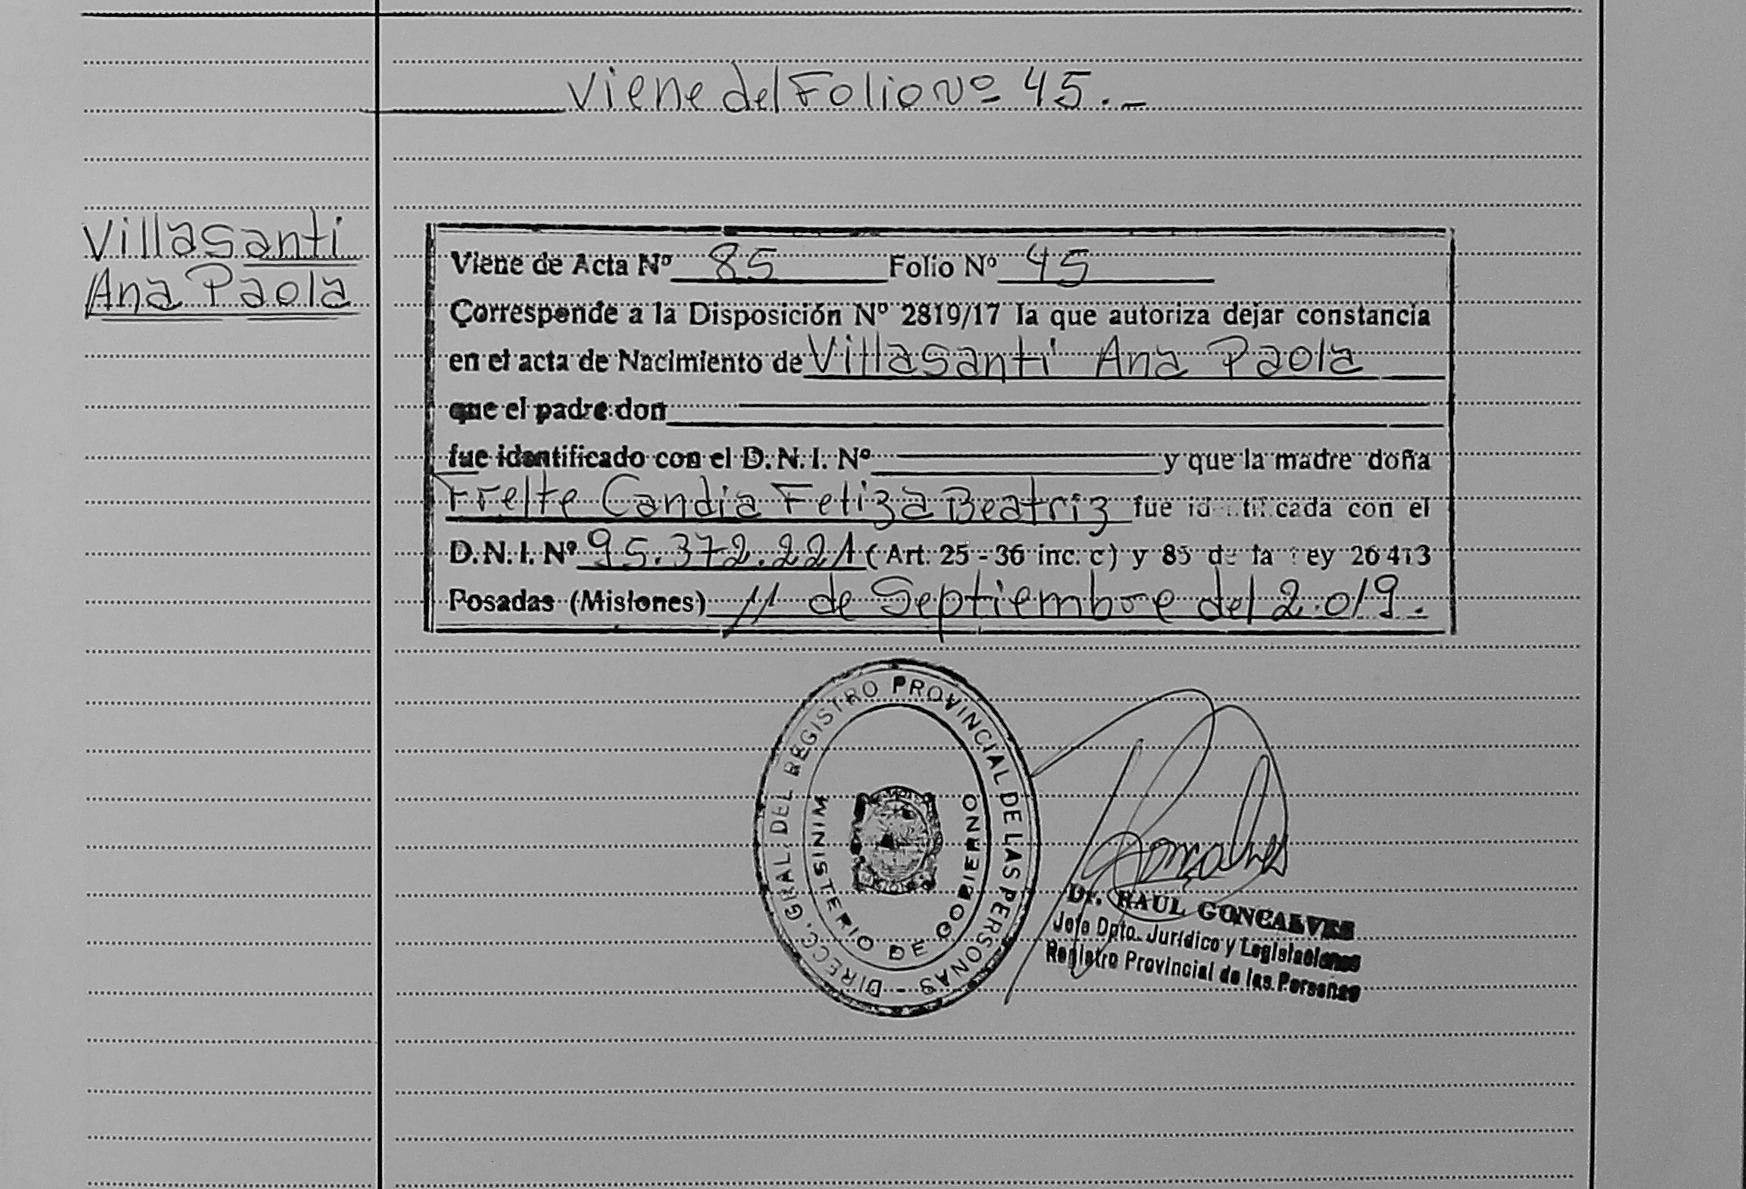 Viene del Folio Nº 45.-
Villasanti
Ana Paola
Viene de Acta Nº 85 Folio Nº 45
Corresponde a la Disposición Nº 2819/17 la que autoriza dejar constancia
en el acta de Nacimiento de Villasanti Ana Paola
que el padre don
fue identificado con el D. N. I. Nº y que la madre doña
Candia Feliza Beatriz fue identificada con el
D. N. I. Nº 95.372.221 (Art. 25 - 36 inc. c) y 85 de la Ley 26413
Posadas (Misiones) 11 de Septiembre del 2.019.
DIRECC. GRAL. DEL REGISTRO PROVINCIAL DE LAS PERSONAS -
MINISTERIO DE GOBIERNO
Goncalves
Dr. RAUL GONCALVES
Jefe Dpto. Jurídico y Legislaciones
Registro Provincial de las Personas